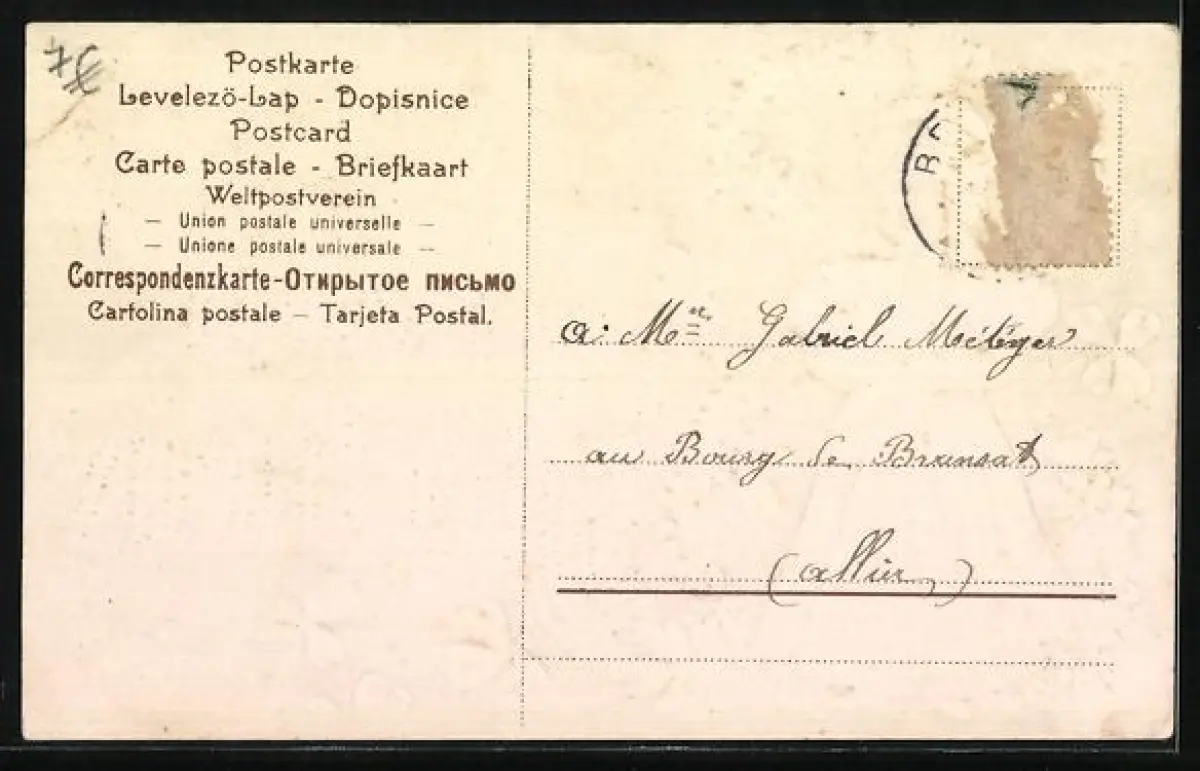 7€
Postkarte
Levelező-Lap - Dopisnice
Postcard
Carte postale - Briefkaart
Weltpostverein
— Union postale universelle —
— Unione postale universale —
Correspondenzkarte-Открытое письмо
Cartolina postale — Tarjeta Postal.
BO
a: Mr Gabriel
au Bourg de Bransat
(allier)